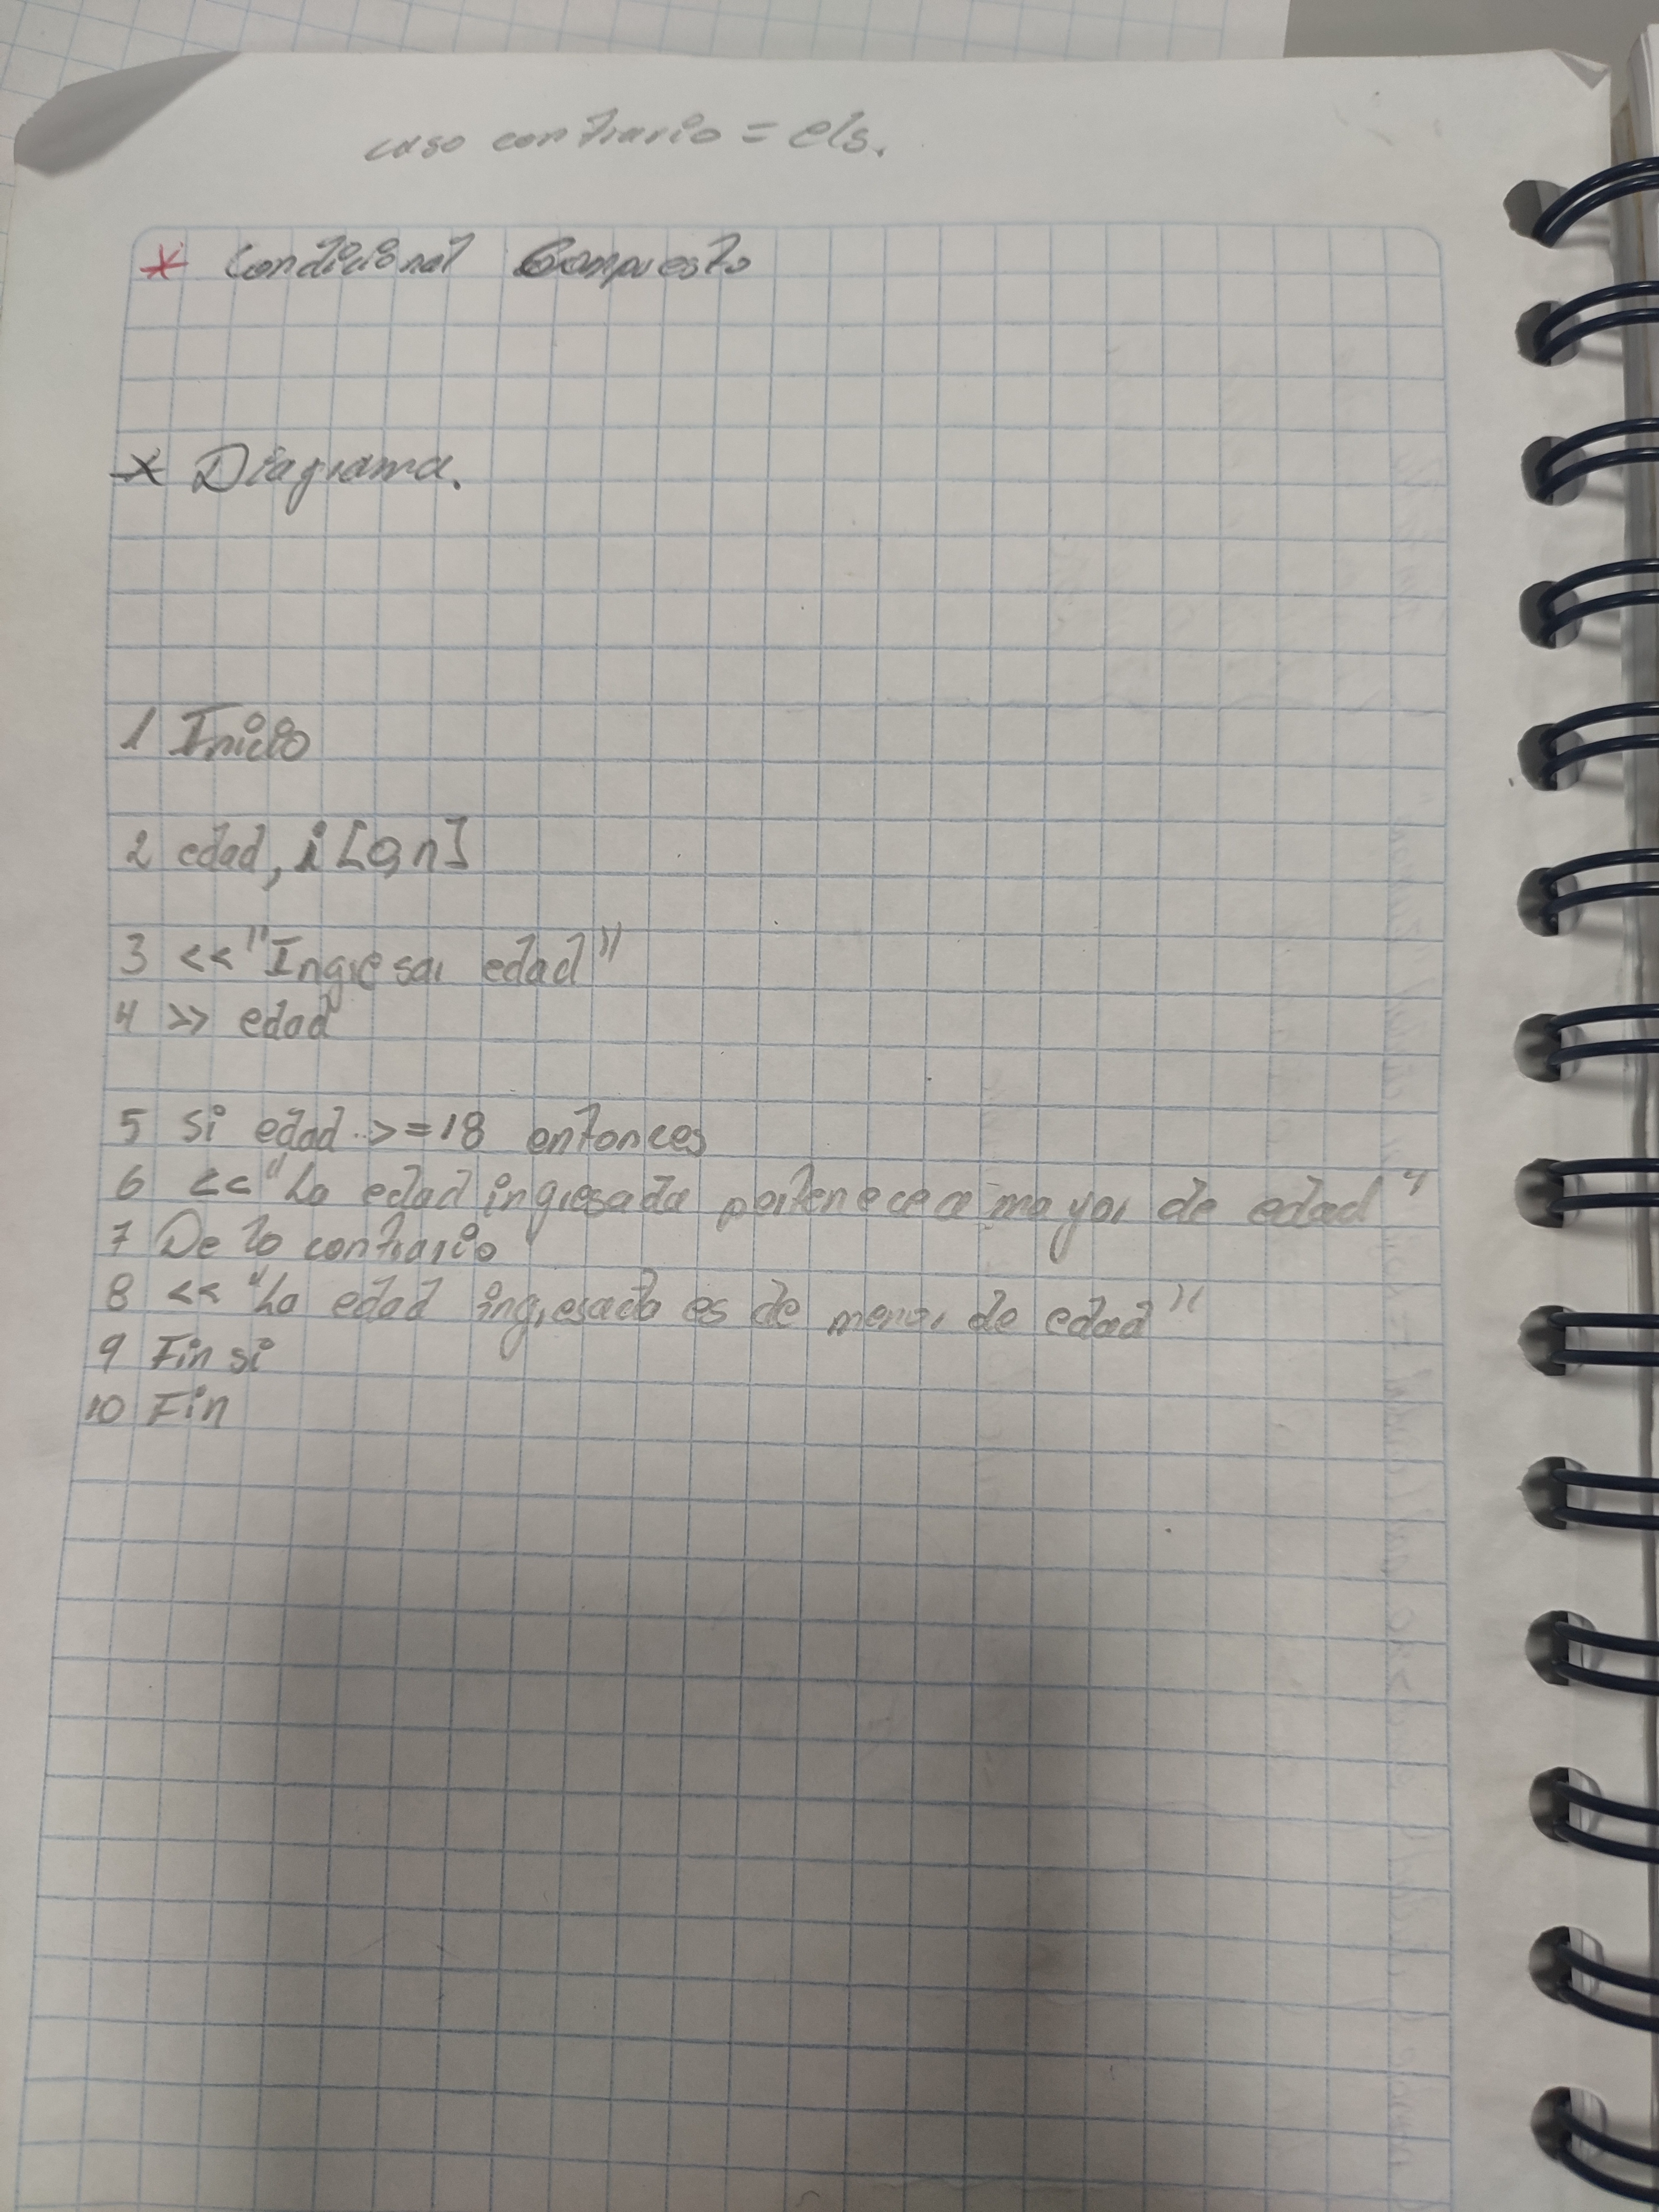 caso contrario = els.
* Condicional Compuesto
* Diagrama.
1 Inicio
2 edad, i [0,n]
3 << "Ingresar edad"
4 >> edad
5 Si edad >= 18 entonces
6 << "La edad ingresada pertenece a mayor de edad"
7 De lo contrario
8 << "La edad ingresada es de menor de edad"
9 Fin si
10 Fin